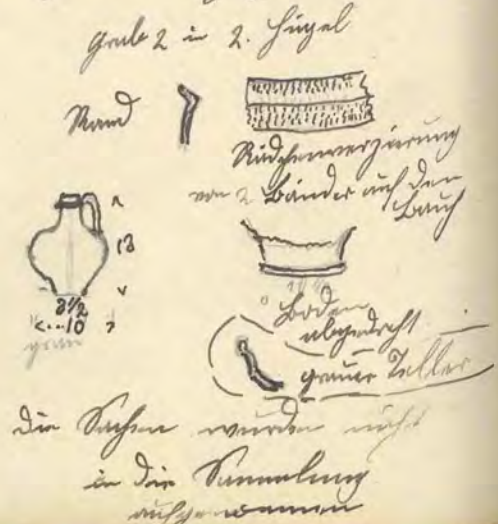 Grab 2 in 2. Hügel
Rand
Rädchenverzierung
von 2 Bänder auf den
Bauch
13
3½
<...10 >
grau
Boden
abgedreht
grauer Teller
Die Sachen wurden nicht
in die Sammlung
aufgenommen